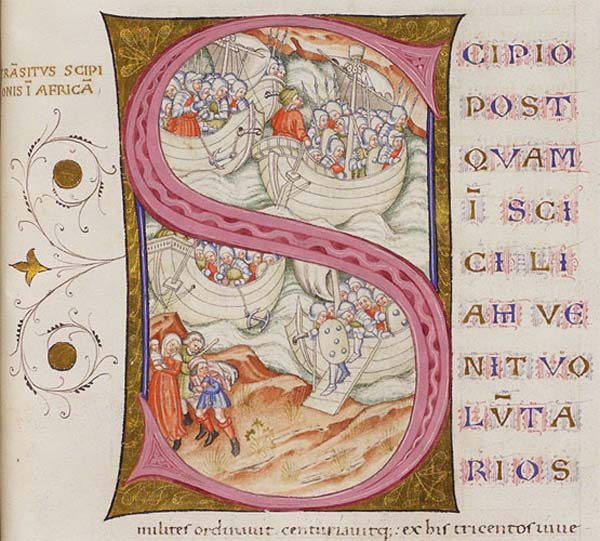 TRĀSITVS SCIPI
ONIS Ī AFRICĀ
SCIPIO
POST
QVAM
Ī SCI
CILI
AH VE
NIT VO
LV̄TA
RIOS
milites ordinavit centuriavitq;: ex his tricentos iuve